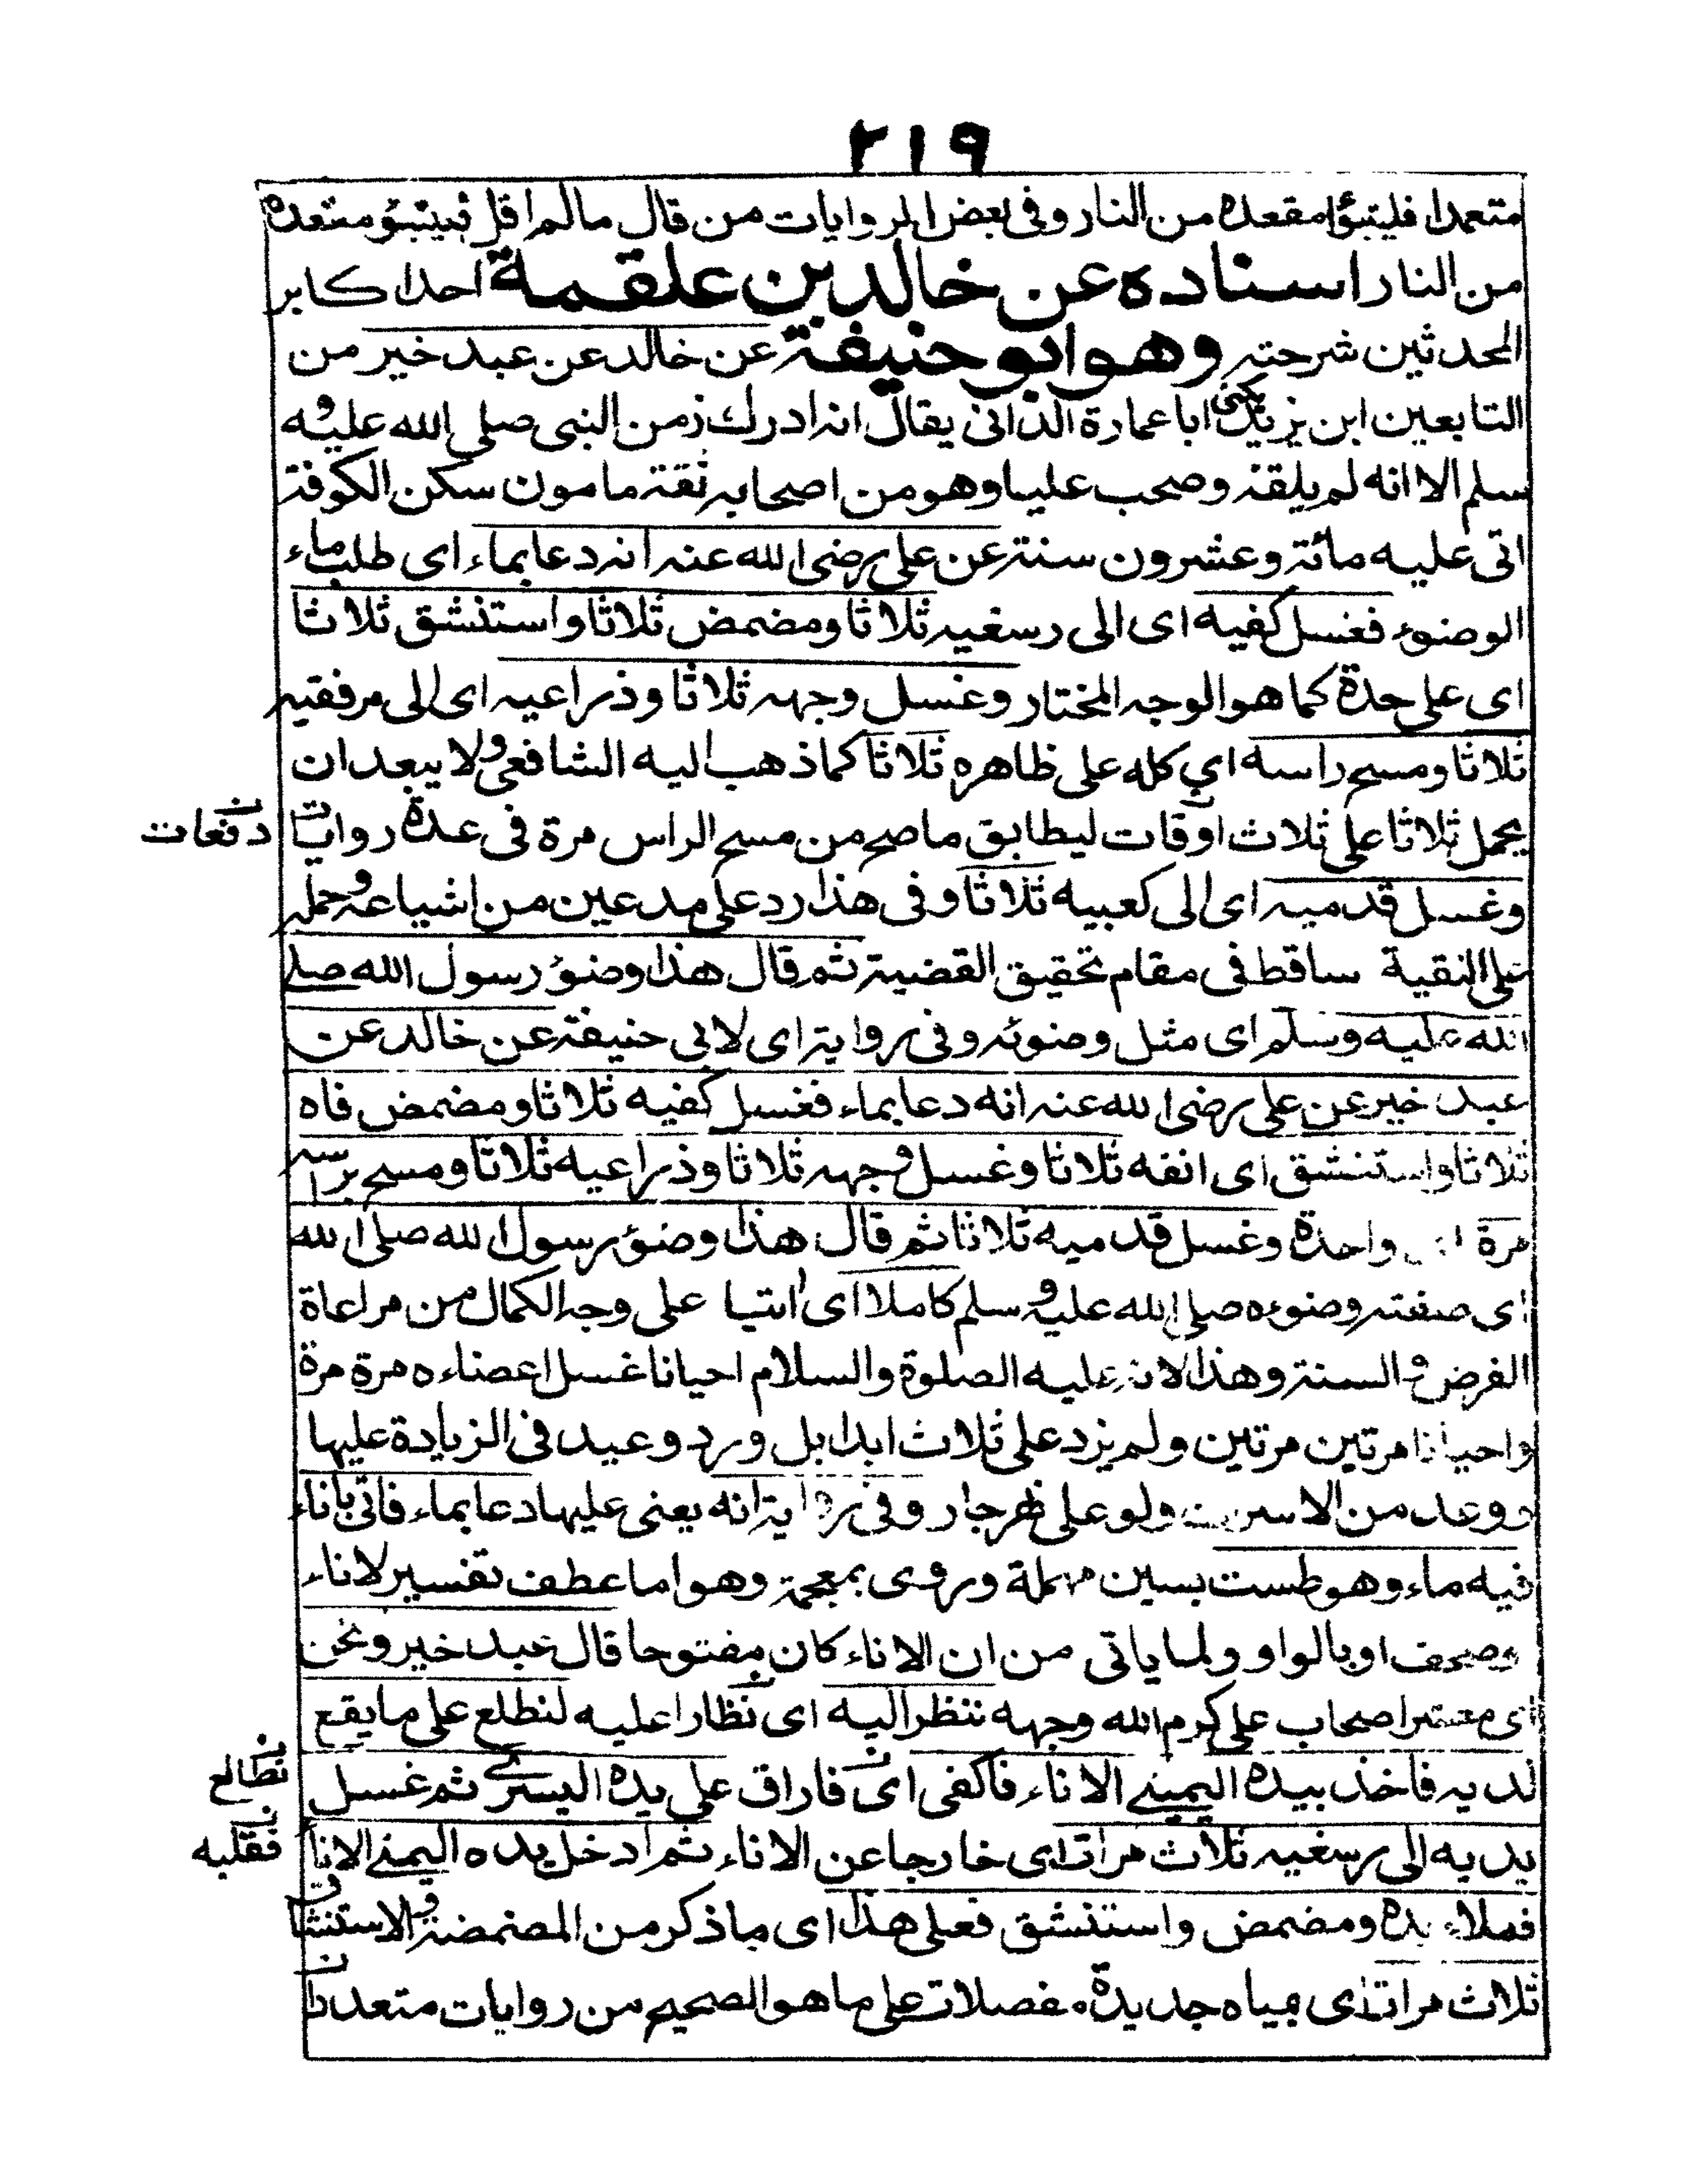 ٢١٩
متعمدا فليتبؤا مقعده من النار وفى بعض الروايات من قال مالم اقل فيتبؤ متعده
من النار اسناده عن خالد بن علقمة احد اكابر
المحدثين شرحته وهو ابو حنيفة عن خالد عن عبد خير من
التابعين ابن يزيد يكنى ابا عمارة الدانى يقال انه ادرك زمن النبى صلى الله عليه و
سلم الا انه لم يلقه وصحب عليا وهو من اصحابه ثقة مامون سكن الكوفة
اتى عليه مائة وعشرون سنة عن على رضى الله عنه انه دعا بماء اى طلب ماء
الوضوء فغسل كفيه اى الى رسغيه ثلاثا ومضمض ثلاثا واستنشق ثلاثا
اى على حدة كما هو الوجه المختار وغسل وجهه ثلاثا وذراعيه اى الى مرفقيه
ثلاثا ومسح راسه اي كله على ظاهره ثلاثا كما ذهب اليه الشافعى ولا يبعد ان
يحمل ثلاثا على ثلاث اوقات ليطابق ما صح من مسح الراس مرة فى عدة روايات
دفعات
وغسل قدميه اى الى كعبيه ثلاثا وفى هذا رد على مدعين من اشياعه وحمله
على التقية ساقط فى مقام تحقيق القضية ثم قال هذا وضؤ رسول الله صلى
الله عليه وسلم اى مثل وضوئه وفى رواية اى لابى حنيفة عن خالد عن
عبد خير عن على رضى الله عنه انه دعا بماء فغسل كفيه ثلاثا ومضمض فاه
ثلاثا واستنشق اى انفه ثلاثا وغسل وجهه ثلاثا وذراعيه ثلاثا ومسح براسه
مرة اى واحدة وغسل قدميه ثلاثا ثم قال هذا وضؤ رسول الله صلى الله
اى صفته وضوءه صلى الله عليه وسلم كاملا اى اتيا على وجه الكمال من مراعاة
الفرض و السنة وهذا لانه عليه الصلوة والسلام احيانا غسل اعضاءه مرة مرة
واحيانا مرتين مرتين ولم يزد على ثلاث ابدا بل ورد وعيد فى الزيادة عليها
وعد من الاسر ولو على نهر جار وفى رواية انه يعنى عليها دعا بماء فاتى باناء
فيه ماء وهو طست بسين مهملة وروى بمعجمة وهو اما عطف تفسير لاناء
وصحف او بالواو ولما ياتى من ان الاناء كان مفتوحا قال عبد خير ونحن
اى معشر اصحاب على كرم الله وجهه ننظر اليه اى نظارا عليه لنطلع على ما يقع
لديه فاخذ بيده اليمنے الاناء فاكفى اى فاراق على يده اليسرے ثم غسل
نطالع
يديه الى رسغيه ثلاث مرات اى خارجا عن الاناء ثم ادخل يده اليمنے الانا
فقلبه
فملاء يده ومضمض واستنشق فعلى هذا اى ما ذكر من المضمضة والاستنشاق
ثلاث مرات اى بمياه جديدة مفصلات على ما هو الصحيح من روايات متعددا